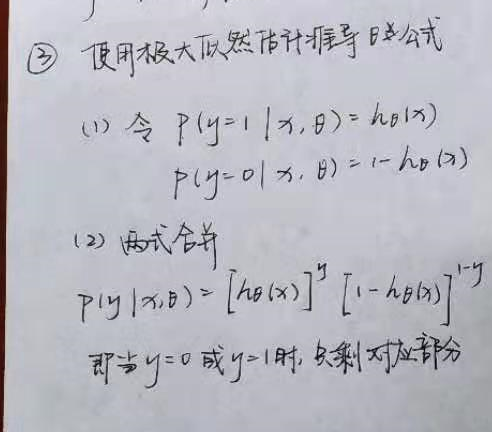 ③ 使用极大似然估计推导日志公式
(1) 令 P(y=1|x,θ)=hθ(x)
P(y=0|x,θ)=1-hθ(x)
(2) 两式合并
P(y|x,θ)=[hθ(x)]^y [1-hθ(x)]^1-y
即当y=0或y=1时,只剩对应部分